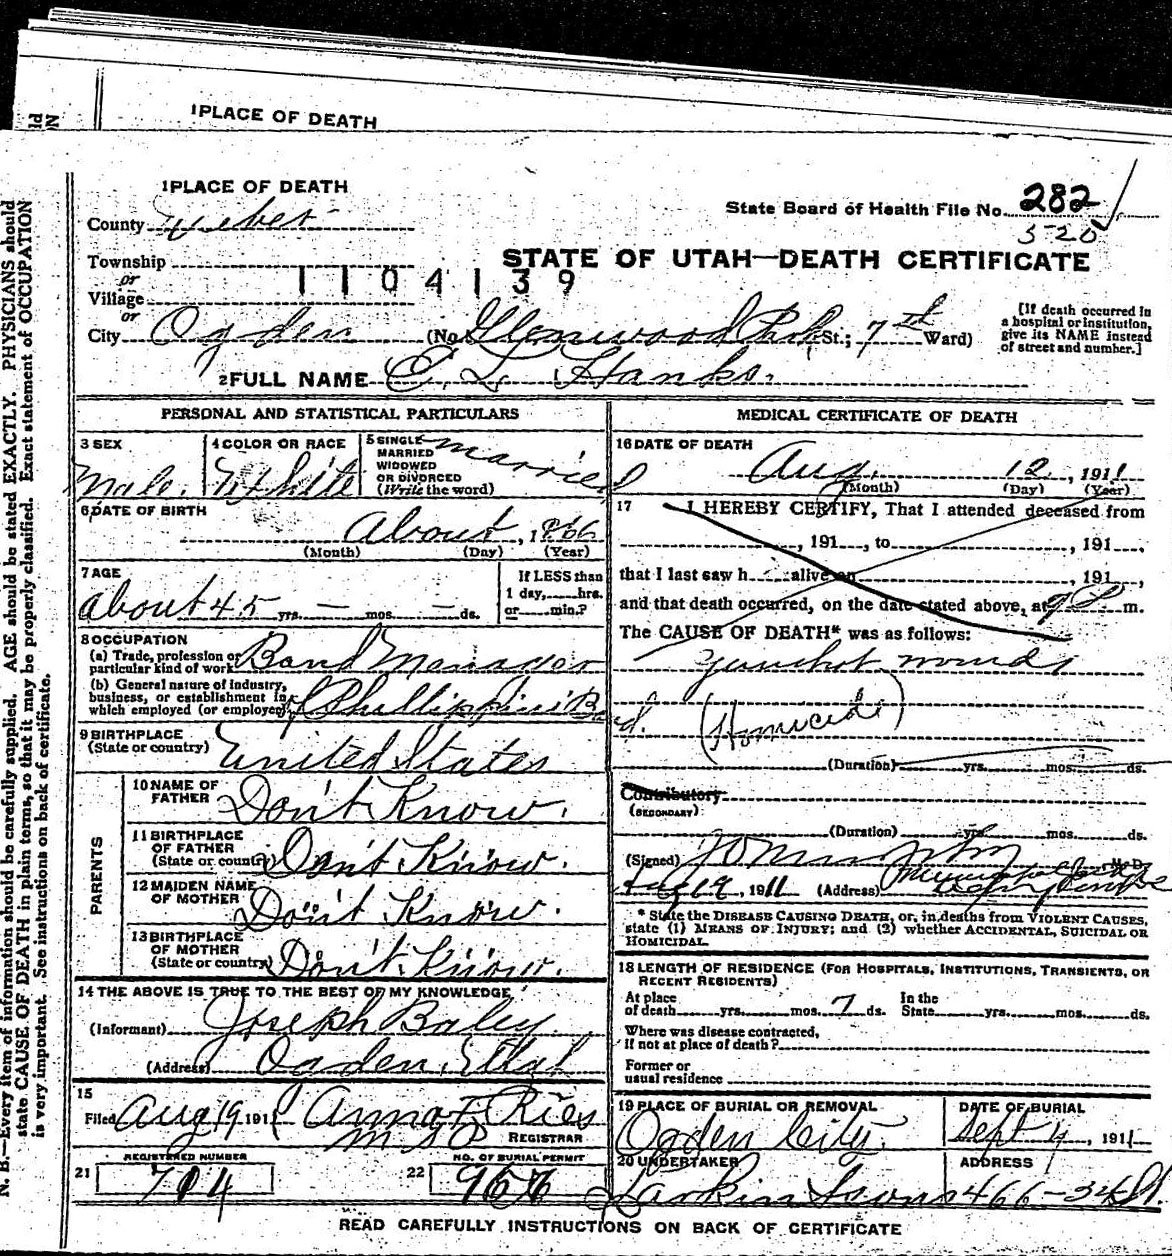 1 PLACE OF DEATH
1 PLACE OF DEATH
County Weber
State Board of Health File No. 282
520
Township
or
Village
or
1104139
STATE OF UTAH—DEATH CERTIFICATE
City Ogden (No. Glenwood Prk St.; 7th Ward)
[If death occurred in a hospital or institution, give its NAME instead of street and number.]
2 FULL NAME C. L. Hanks.
PERSONAL AND STATISTICAL PARTICULARS
3 SEX
Male.
4 COLOR OR RACE
White
5 SINGLE
MARRIED
WIDOWED
OR DIVORCED
(Write the word)
Married
6 DATE OF BIRTH
About, 1866
(Month) (Day) (Year)
7 AGE
about 45 yrs. — mos. — ds.
If LESS than
1 day, hrs.
or min.?
8 OCCUPATION
(a) Trade, profession or
particular kind of work Band Manager
(b) General nature of industry,
business, or establishment in
which employed (or employer) of Phillippini Band.
9 BIRTHPLACE
(State or country) United States
PARENTS
10 NAME OF
FATHER Don't Know.
11 BIRTHPLACE
OF FATHER
(State or country) Don't Know.
12 MAIDEN NAME
OF MOTHER Don't Know.
13 BIRTHPLACE
OF MOTHER
(State or country) Don't Know.
14 THE ABOVE IS TRUE TO THE BEST OF MY KNOWLEDGE
(Informant) Joseph Baley
(Address) Ogden, Utah
15
Filed Aug 19 1911 Anna F. Ries
REGISTRAR
21 REGISTERED NUMBER
714
22 NO. OF BURIAL PERMIT
967
MEDICAL CERTIFICATE OF DEATH
16 DATE OF DEATH
Aug. 12, 1911
(Month) (Day) (Year)
17 I HEREBY CERTIFY, That I attended deceased from
, 191 , to , 191 ,
that I last saw h alive on , 191 ,
and that death occurred, on the date stated above, at 9 P. m.
The CAUSE OF DEATH* was as follows:
gunshot wounds
(Homicide)
(Duration) yrs. mos. ds.
Contributory
(SECONDARY)
(Duration) yrs. mos. ds.
(Signed) M.D.
Aug 19, 1911 (Address)
* State the DISEASE CAUSING DEATH, or, in deaths from VIOLENT CAUSES,
state (1) MEANS OF INJURY; and (2) whether ACCIDENTAL, SUICIDAL OR
HOMICIDAL.
18 LENGTH OF RESIDENCE (FOR HOSPITALS, INSTITUTIONS, TRANSIENTS, OR
RECENT RESIDENTS)
At place
of death yrs. mos. 7 ds.
In the
State yrs. mos. ds.
Where was disease contracted,
if not at place of death?
Former or
usual residence
19 PLACE OF BURIAL OR REMOVAL
Ogden City.
DATE OF BURIAL
Sept 4, 1911
20 UNDERTAKER
Larkin & Sons
ADDRESS
466-24 St.
READ CAREFULLY INSTRUCTIONS ON BACK OF CERTIFICATE
N. B.—Every item of information should be carefully supplied. AGE should be stated EXACTLY. PHYSICIANS should
state CAUSE OF DEATH in plain terms, so that it may be properly classified. Exact statement of OCCUPATION
is very important. See instructions on back of certificate.